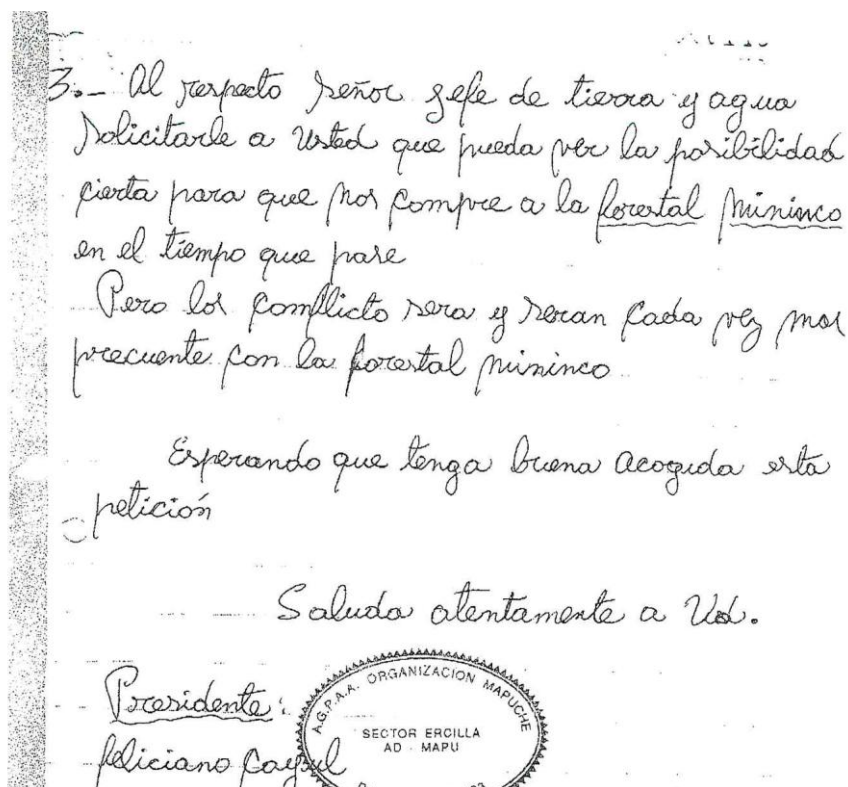 3.- Al respecto señor gefe de tierra y agua
Solicitarle a Usted que pueda ver la posibilidad
cierta para que nos compre a la forestal mininco
en el tiempo que pase
Pero los comflicto sera y seran cada vez mas
precuente con la forestal mininco
Esperando que tenga buena acoguda esta
petición
Saluda atentamente a Ud.
Presidente:
feliciano
A.G.P.A.A. ORGANIZACION MAPUCHE
SECTOR ERCILLA
AD - MAPU